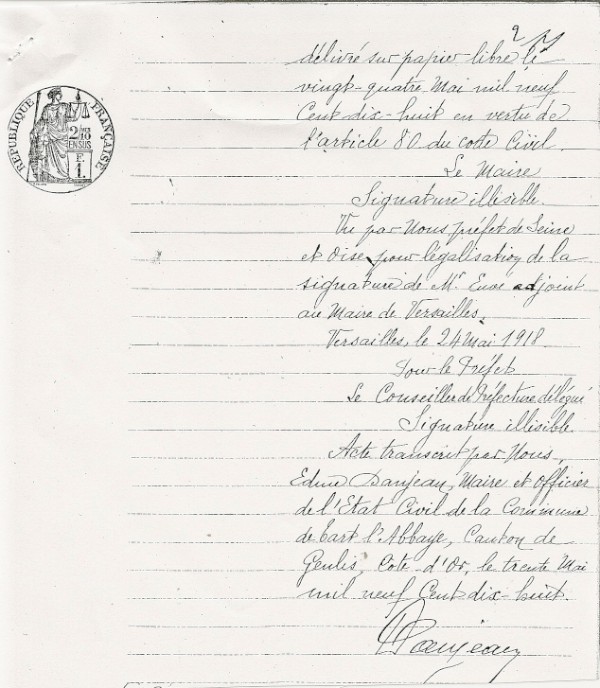 2
délivré sur papier libre le
vingt-quatre Mai mil neuf
Cent dix-huit en vertu de
l'article 80 du code Civil.
Le Maire
Signature illisible.
Vu par Nous préfet de Seine
et Oise, pour légalisation de la
signature de Mr Euvé adjoint
au Maire de Versailles.
Versailles, le 24 Mai 1918
Pour le Préfet
Le Conseiller de Préfecture délégué
Signature illisible
Acte transcrit par Nous,
Edme Danjean, Maire et officier
de l'Etat Civil de la Commune
de Tart l'Abbaye, Canton de
Genlis, Côte-d'Or, le trente Mai
mil neuf Cent dix-huit.
Danjean
REPUBLIQUE FRANÇAISE
2/10
EN SUS
F.
1.